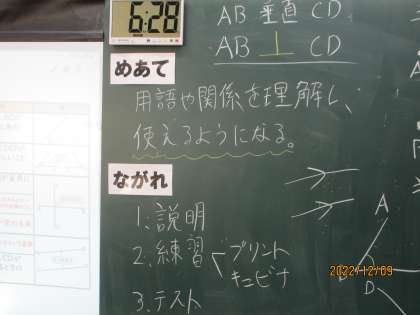 6:28
AB 垂直 CD
AB ⊥ CD
めあて
用語や関係を理解し、
使えるようになる。
ながれ
1.説明
2.練習
プリント
キュビナ
3.テスト
A
D
2022/12/09